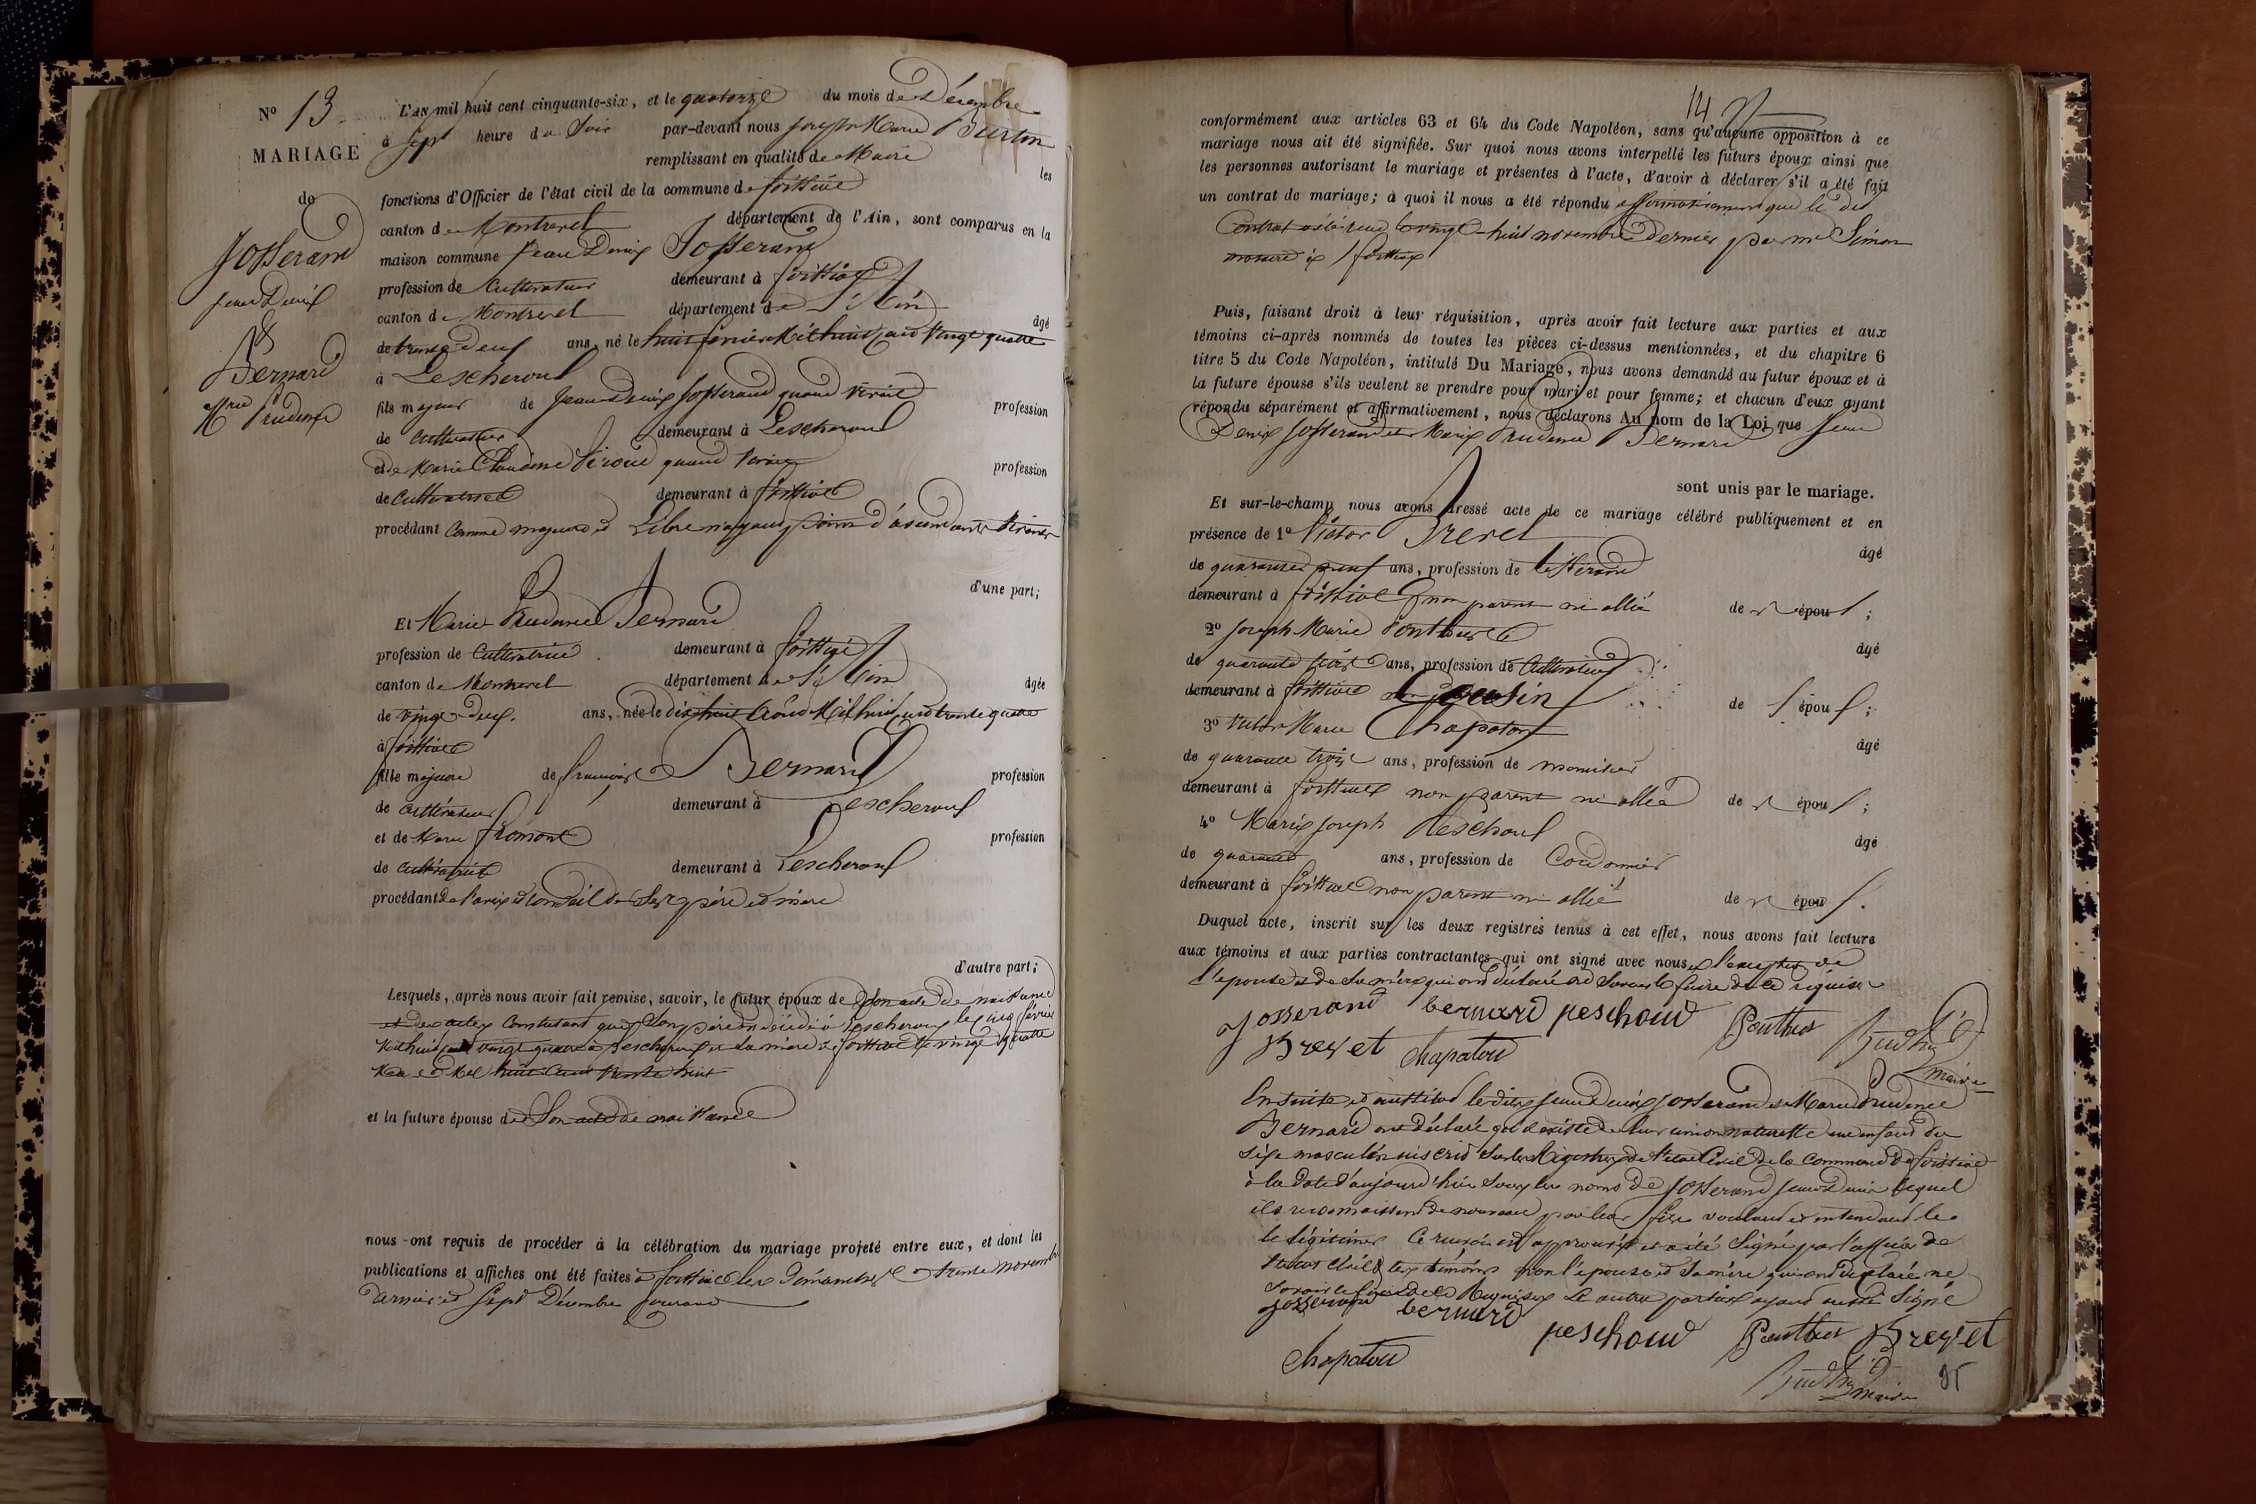 No 13
MARIAGE
de
Josserand
Jean Denis
&
Bernard
Mrie Prudence
L'AN mil huit cent cinquante-six, et le quatorze du mois de Décembre
à sept heure du Soir par-devant nous Joseph Marie
remplissant en qualité de Maire les
fonctions d'Officier de l'état civil de la commune de foissiat
canton de Montrevel département de l'Ain, sont comparus en la
maison commune Jean Denis Josserand
profession de Cultivateur demeurant à foissiat
canton de Montrevel département de l'Ain âgé
de trente deux ans, né le huit février Mil huit cent vingt quatre
à Lescheroux
fils majeur de Jean Denis Josserand quand vivait profession
de Cultivateur demeurant à Lescheroux
et de Marie Claudine quand vivait profession
de Cultivatrice demeurant à foissiat
procédant Comme majeur et Libre n'ayant point d'ascendants vivants
d'une part;
Et Marie Prudence Bernard
profession de Cultivatrice demeurant à foissiat
canton de Montrevel département de l'Ain âgée
de vingt-deux ans, née le dix huit Août Mil huit cent trente quatre
à foissiat
fille majeure de françois Bernard profession
de Cultivateur demeurant à Lescheroux
et de Marie fromont profession
de Cultivatrice demeurant à Lescheroux
procédant de l'avis et Conseil de Ses père et mère
d'autre part;
Lesquels, après nous avoir fait remise, savoir, le futur époux de Son acte de naissance
et des actes Constatant que Son père est décédé à Lescheroux le cinq février
Mil huit cent vingt quatre à Lescheroux et Sa mère à foissiat le vingt quatre
Mai Mil huit Cent trente huit
et la future épouse de Son acte de naissance
nous ont requis de procéder à la célébration du mariage projeté entre eux, et dont les
publications et affiches ont été faites à foissiat les Dimanches trente novembre
dernier et Sept Décembre Courant
14
conformément aux articles 63 et 64 du Code Napoléon, sans qu'aucune opposition à ce
mariage nous ait été signifiée. Sur quoi nous avons interpellé les futurs époux ainsi que
les personnes autorisant le mariage et présentes à l'acte, d'avoir à déclarer s'il a été fait
un contrat de mariage; à quoi il nous a été répondu affirmativement que le dit
Contrat a été reçu le vingt-huit novembre dernier par me Simon
notaire à foissiat
Puis, faisant droit à leur réquisition, après avoir fait lecture aux parties et aux
témoins ci-après nommés de toutes les pièces ci-dessus mentionnées, et du chapitre 6
titre 5 du Code Napoléon, intitulé Du Mariage, nous avons demandé au futur époux et à
la future épouse s'ils veulent se prendre pour mari et pour femme; et chacun d'eux ayant
répondu séparément et affirmativement, nous déclarons Au nom de la Loi que Jean
Denis Josserand et Marie Prudence Bernard
sont unis par le mariage.
Et sur-le-champ nous avons dressé acte de ce mariage célébré publiquement et en
présence de 1o Victor Brevet âgé
de quarante neuf ans, profession de tisserand
demeurant à foissiat non parent ni allié de s épou ;
2o Joseph Marie Ponthus âgé
de quarante trois ans, profession de Cultivateur
demeurant à foissiat Cousin de l épou ;
3o Victor Marie Chapaton âgé
de quarante trois ans, profession de menuisier
demeurant à foissiat non parent ni allié de s épou ;
4o Marie Joseph Peschoux âgé
de quarante ans, profession de Cordonnier
demeurant à foissiat non parent ni allié de s épou .
Duquel acte, inscrit sur les deux registres tenus à cet effet, nous avons fait lecture
aux témoins et aux parties contractantes qui ont signé avec nous à l'exception de
l'épouse et de Sa mère qui ont déclaré ne Savoir le faire de ce requises
Josserand bernard peschoud Ponthus
Brevet Chapatou
maire
Ensuite et aussitôt les dits Jean Denis Josserand et Marie Prudence
Bernard ont déclaré qu'il existe de leur union naturelle un enfant du
sexe masculin inscrit Sur les Registres de l'état Civil de la Commune de foissiat
à la date d'aujourd'hui Sous les noms de Josserand Jean Denis lequel
ils reconnaissent de nouveau pour leur fils voulant et entendant le
le légitimer Ce approuvé et a été Signé par l'officier de
l'état Civil & les témoins non l'épouse et Sa mère qui ont déclaré ne
Savoir le faire de ce Requises Les autres parties ayant Signé
Josserand bernard
peschoud Ponthus Brevet
Chapatou
maire
95